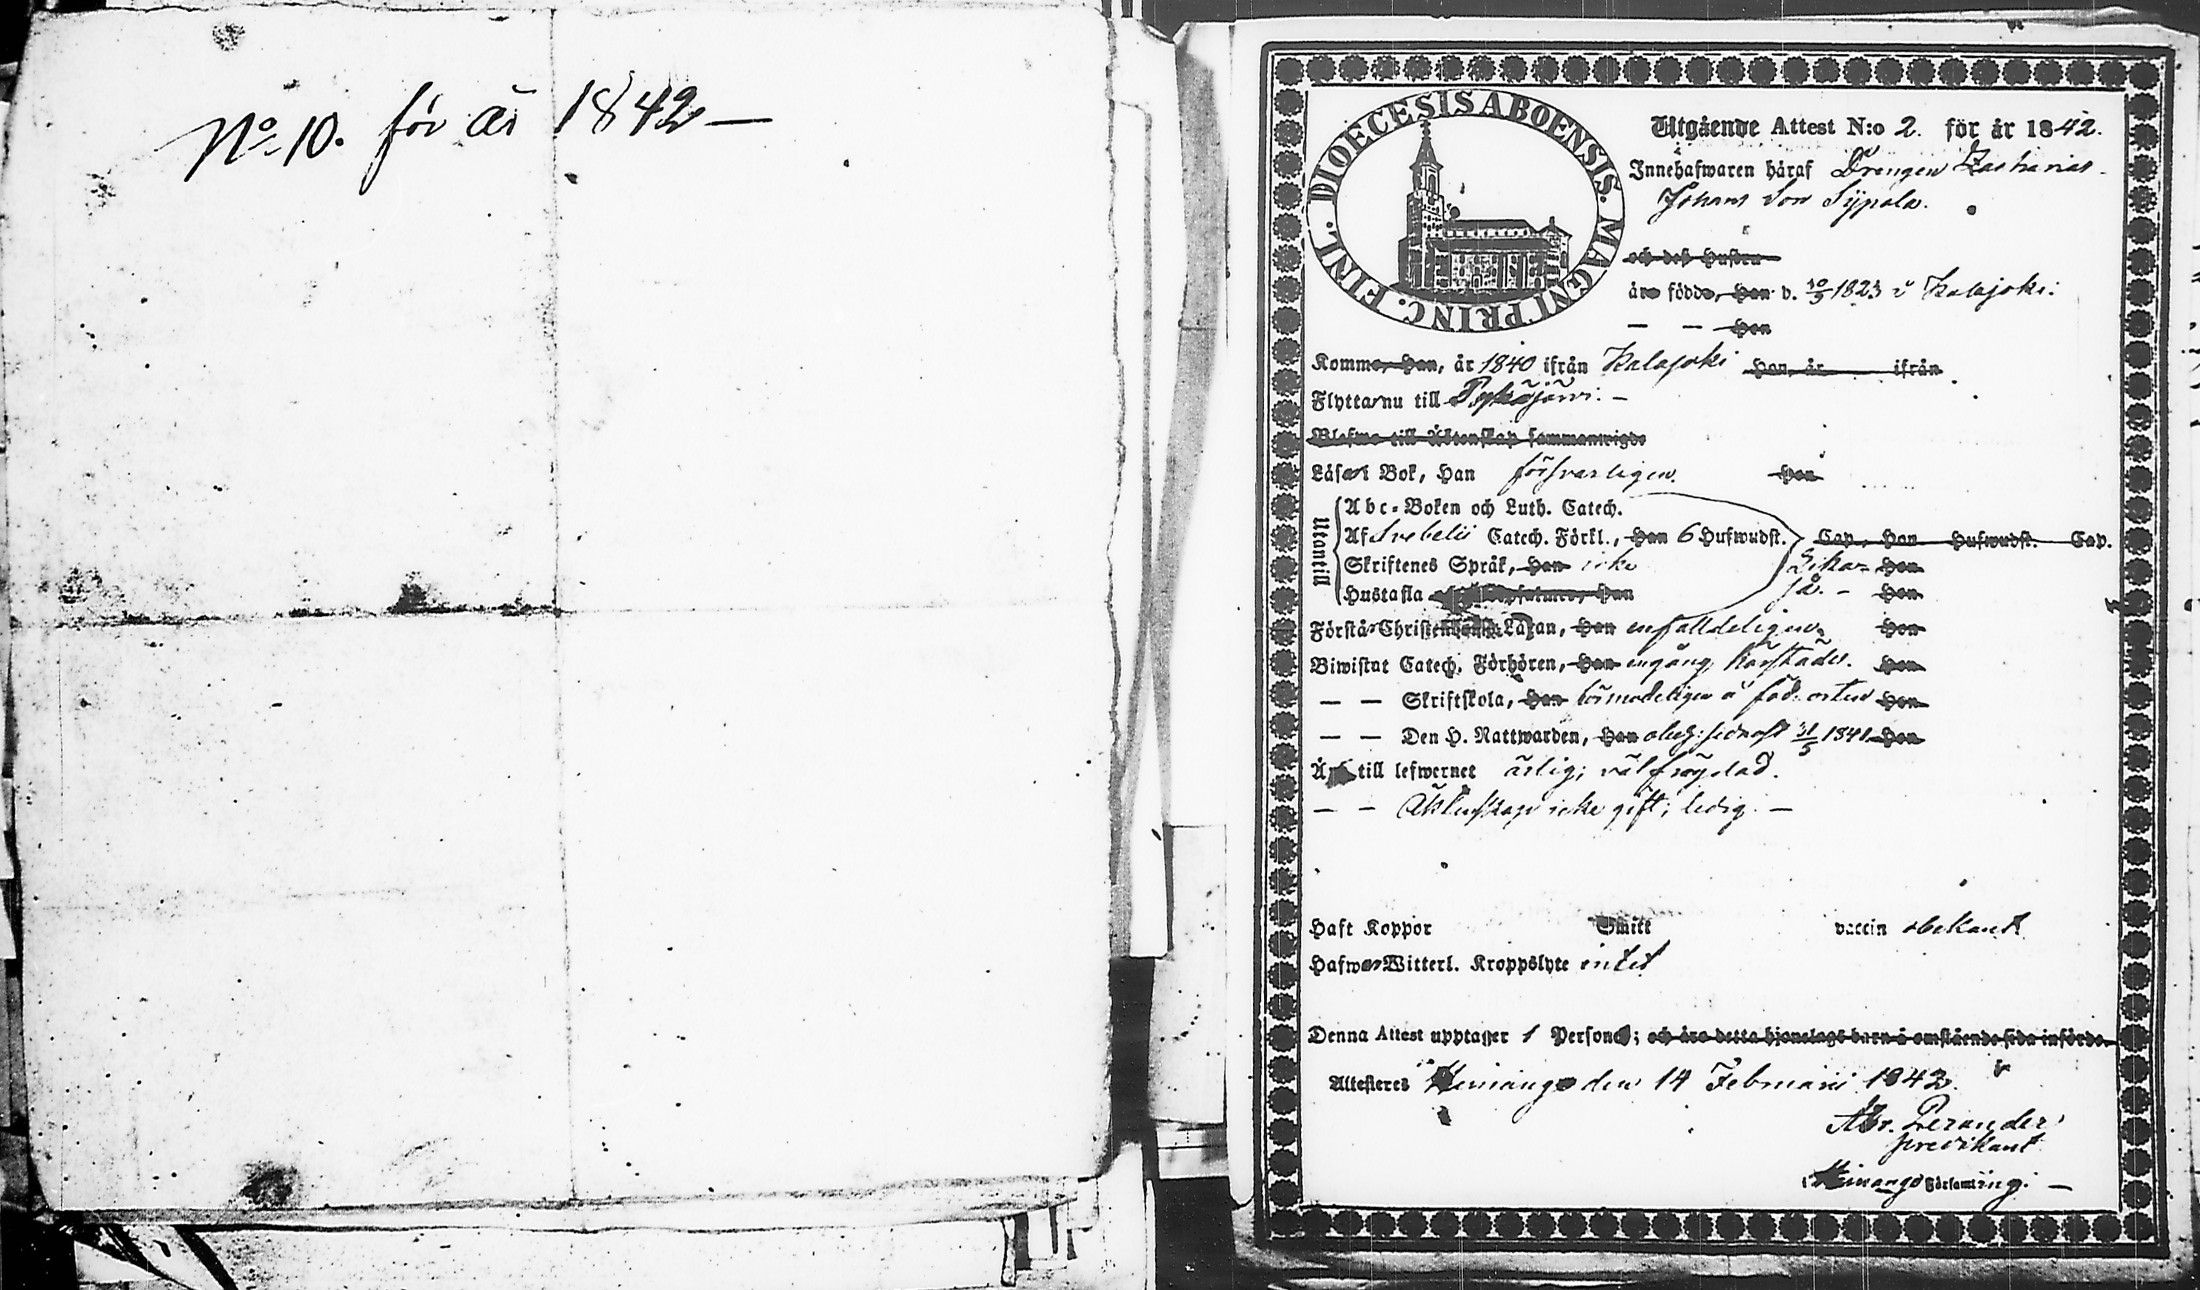 No 10. för år 1842 —
DIOECESIS ABOENSIS. MAGNI PRINC. FINL.
Utgående Attest N:o 2. för år 1842.
Innehafwaren häraf Drengen Zacharias
Johans Son Sypola.
och deß Hustru
äro födde, Han d. 10/5 1823 i Kalajoki.
— — Hon
Komme, Han, år 1840 ifrån Kalajoki Hon, år ifrån
Flytta nu till Pyhäjärvi. —
Blefwo till Äktenskap sammanwigde
Läsa i Bok, Han försvarligen. Hon
Utantill
Abc-Boken och Luth. Catech.
Af Svebelii Catech. Förkl., Han 6 Hufwudst. Cap., Hon Hufwudst. Cap.
Skriftenes Språk, Han icke Hon
Hustafla Han Hon
Förstå Christendoms Läran, Han enfalldeligen. Hon
Biwistat Catech. Förhören, Han engång härstädes. Hon
— — Skriftskola, Han å föd. orten Hon
— — Den H. Nattwarden, Han 31/5 1841 Hon
till lefwernet ärlig; välfrägdad.
— — Äktenskap icke gift; ledig. —
Haft Koppor Smitt vaccin obekant
Hafwa Witterl. Kroppslyte intet
Denna Attest upptager 1 Person; och äro detta hjonelags barn å omstående sida införde.
Attesteras den 14 Februarii 1842.
Abr.
predikant
Församling. —